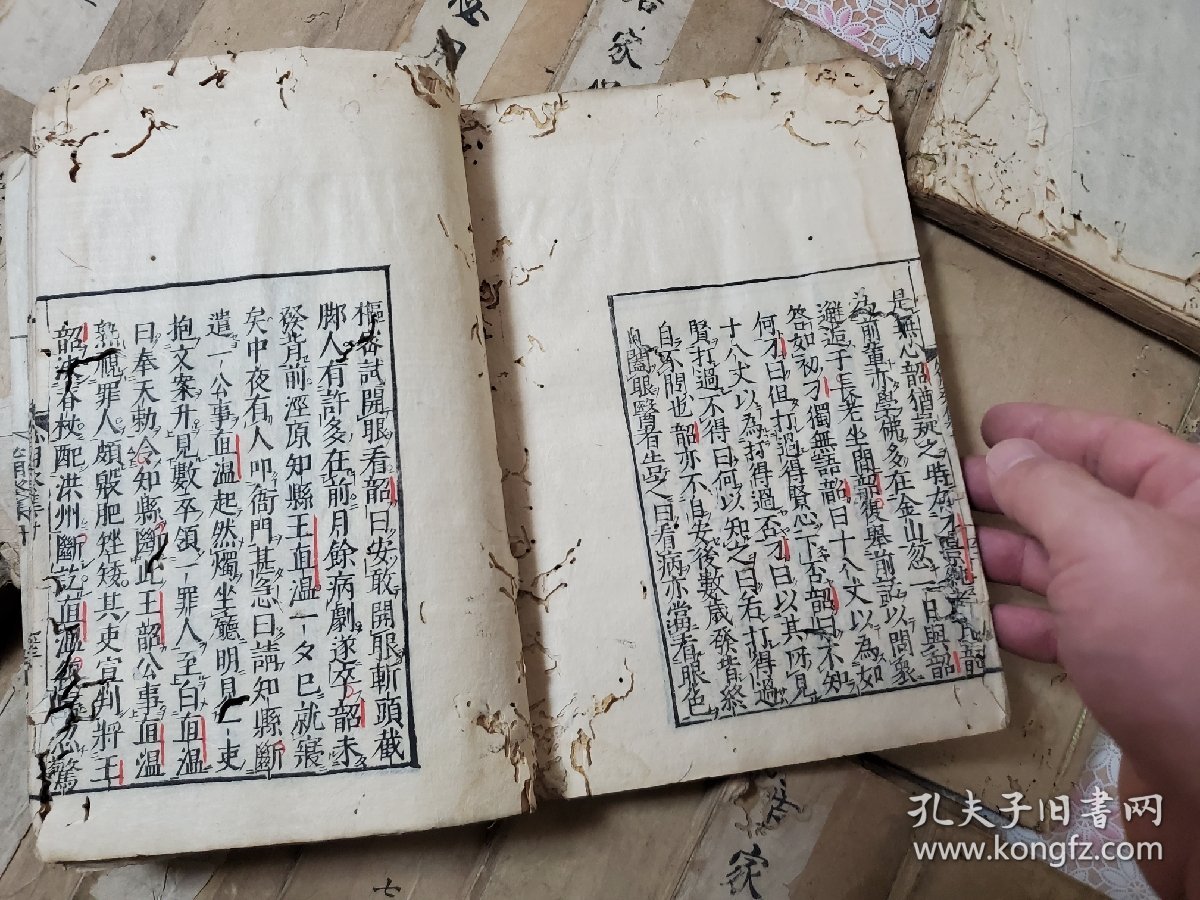 是無心韶猶疑之時
為前輩亦學佛多在金山忽一日與韶
邂逅于長老坐間韶復舉前話以問衆
答如初刁獨無語韶曰十八丈以為如
何刁曰但打過得賢心下否韶曰不知
十八丈以為打得過否刁曰以其所見
賢打過不得曰何以知之曰若打得過
自不問也韶亦不自安後數歲發背終
自闔眼醫者告之曰看病亦當看眼色
樞密試開眼看韶曰安敢開眼斬頭截
脚人有許多在前月餘病劇遂卒韶未
發背前涇原知縣王直溫一夕已就寢
矣中夜有人叩衙門甚急曰請知縣斷
遣一公事直溫起然燭坐廳明見一吏
抱文案升見數卒領一罪人至白直溫
曰奉天勅令知縣斷此王韶公事直溫
熟視罪人頗殷肥矬矮其吏宣判將王
韶決脊杖配洪州斷訖直溫
孔夫子旧书网
www.kongfz.com